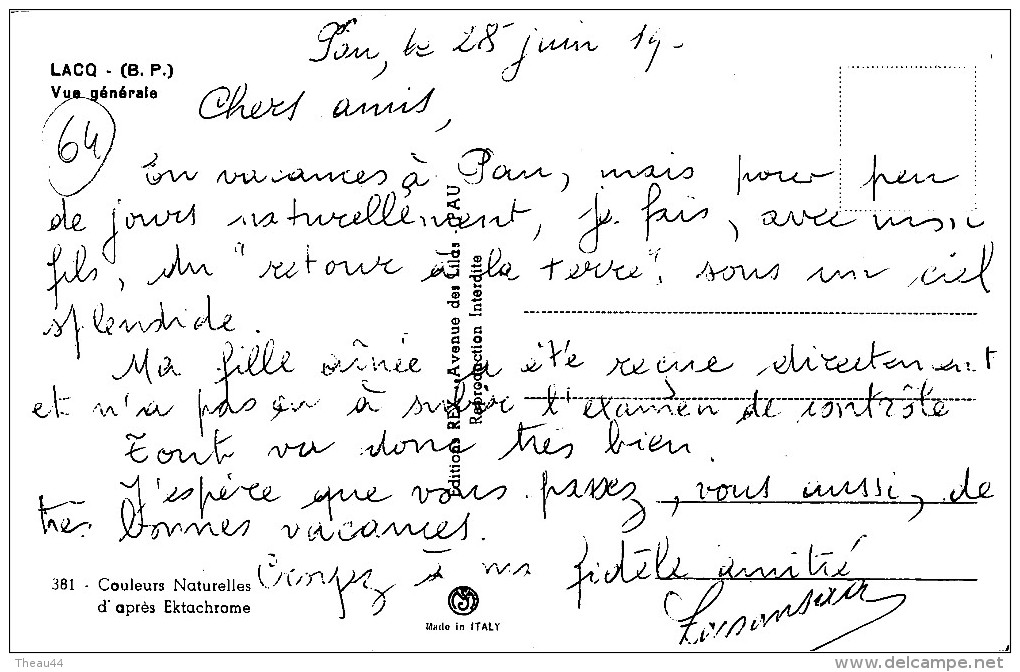 Pau, le 28 juin 19-
LACQ - (B. P.)
Vue générale
64
Chers amis,
En vacances à Pau, mais pour peu
de jours naturellement, je fais, avec mon
fils, du "retour à la terre", sous un ciel
splendide.
Ma fille aînée a été reçue directement
et n'a pas eu à subir l'examen de contrôle
Tout va donc très bien.
J'espère que vous passez, vous aussi, de
très bonnes vacances.
Croyez à ma fidèle amitié
Editions REX - Avenue des Lilas - PAU
Reproduction Interdite
381 - Couleurs Naturelles
d'après Ektachrome
Made in ITALY
Theau44
www.delcampe.net